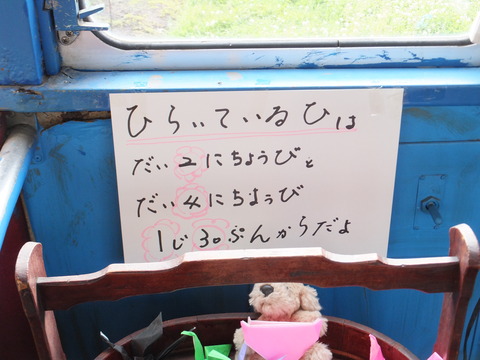 ひらいているひは
だい2にちようびと
だい4にちようび
1じ30ぷんからだよ